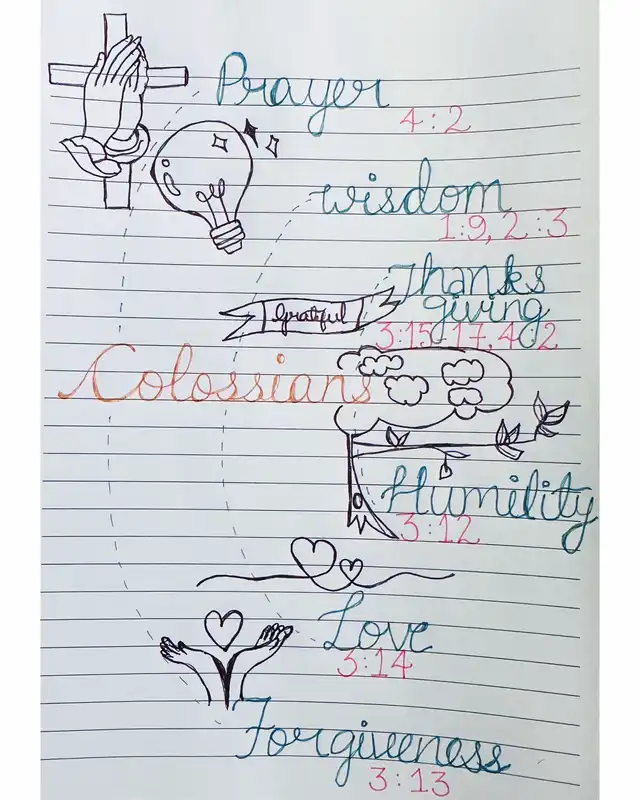 Prayer
4:2
wisdom
1:9, 2:3
Thanks
giving
grateful
3:15-17, 4:2
Colossians
Humility
3:12
Love
3:14
Forgiveness
3:13